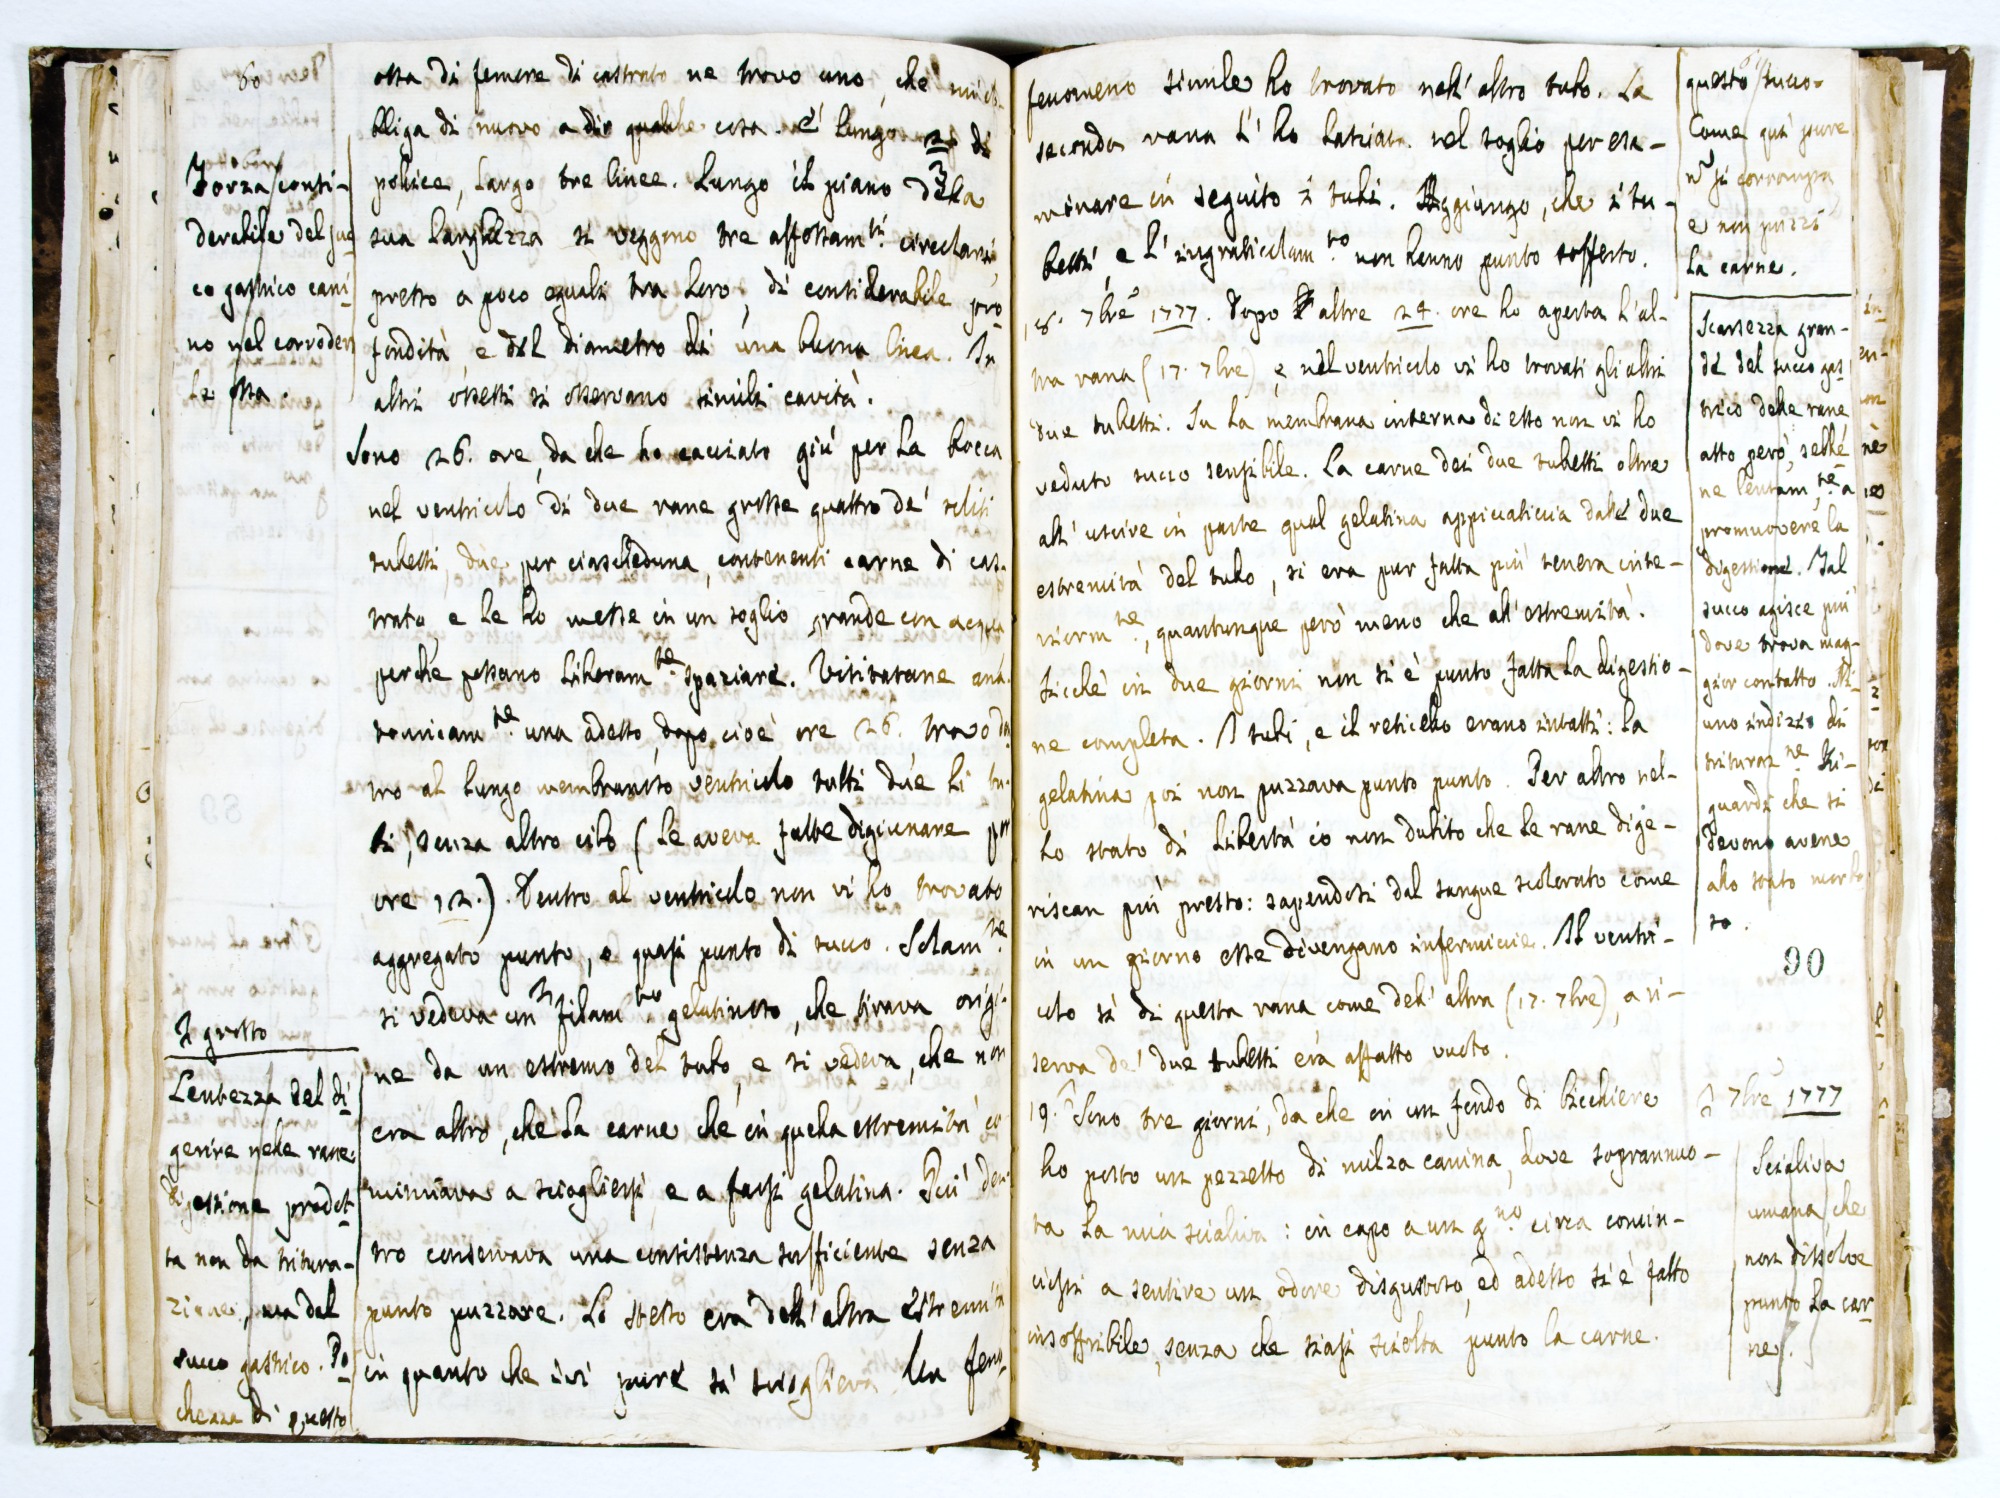 60
ossa di femore di castrato ne trovo uno, che mi ob-
bliga di nuovo a dir qualche cosa. è lungo 2/3 di
pollice, largo tre linee. Lungo il piano della
sua larghezza si veggono tre affossam.ti circolari,
presso a poco eguali tra loro, di considerabile pro-
fondità e del diametro di una buona linea. In
altri ossetti si osservano simili cavità.
Forza consi-
derabile del su
co gastrico cani-
no nel corroder
le ossa.
Sono 26. ore, da che ho cacciato giù per la bocca
nel ventricolo di due rane grosse quattro de' soliti
tubetti, due per ciascheduna, contenenti carne di cas-
trato, e le ho messe in un soglio grande con acqua
perchè possano liberam.te spaziare. Visitatane ana-
tomicam.te una adesso, dopo cioè ore 26. trovo den
tro al lungo membranoso ventricolo tutti due li tu-
bi, senza altro cibo (le aveva fatte digiunare per
ore 12.). Dentro al ventricolo non vi ho trovato
aggregato punto, o quasi punto di succo. Solam.te
si vedeva un filam.to gelatinoso, che tirava origi-
ne da un estremo del tubo, e si vedeva, che non
era altro, che la carne che in quella estremità co
minciava a sciogliersi, e a farsi gelatina. Più den
tro conservava una consistenza sufficiente senza
punto puzzare. Lo stesso era dell'altra estremità
in quanto che ivi pure si scioglieva. Un feno-
Il grosso
Lentezza del di-
gerire nelle rane
digestione prodot-
ta non da tritura-
zione, ma dal
succo gastrico. Po
chezza di questo
fenomeno simile ho trovato nell'altro tubo. La
seconda rana l'ho lasciata nel soglio per esa-
minare in seguito i tubi. Aggiungo, che i tu-
betti, e l'ingraticolam.to non hanno punto sofferto.
18. 7bre 1777. Dopo altre 24. ore ho aperta l'al-
tra rana (17. 7bre), e nel ventricolo vi ho trovati gli altri
due tubetti. Su la membrana interna di esso non vi ho
veduto succo sensibile. La carne dei due tubetti oltre
all'uscire in parte qual gelatina appiccaticcia dalle due
estremità del tubo, si era pur fatta più tenera inte-
riorm.te, quantunque però meno che all'estremità.
Sicchè in due giorni non si è punto fatta la digestio-
ne completa. I tubi, e il reticello erano intatti: la
gelatina poi non puzzava punto punto. Per altro nel-
lo stato di libertà io non dubito che le rane dige-
riscan più presto: sapendosi dal sangue scolorato come
in un giorno esse divengano infermiccie. Il ventri-
colo sì di questa rana come dell'altra (17. 7bre), a ri-
serva de' due tubetti era affatto vuoto.
19. Sono tre giorni, da che in un fondo di bicchiere
ho posto un pezzetto di milza canina, dove soprannuo-
ta la mia scialiva: in capo a un g.no circa comin-
ciossi a sentire un odore disgustoso, ed adesso si è fatto
insoffribile, senza che siasi sciolta punto la carne.
questo succo.
Come qui pure
n si corrompa
e non puzzi
la carne.
Scarsezza gran-
de del succo gas-
trico delle rane
atto però, sebbe-
ne lentam.te, a
promuovere la
digestione. Tal
succo agisce più
dove trova mag-
gior contatto. Ni-
uno indizio di
triturazne. Ri-
guardi che si
devono avere
allo stato morbo
so.
90
7bre 1777
Scialiva
umana, che
non dissolve
punto la car
ne.